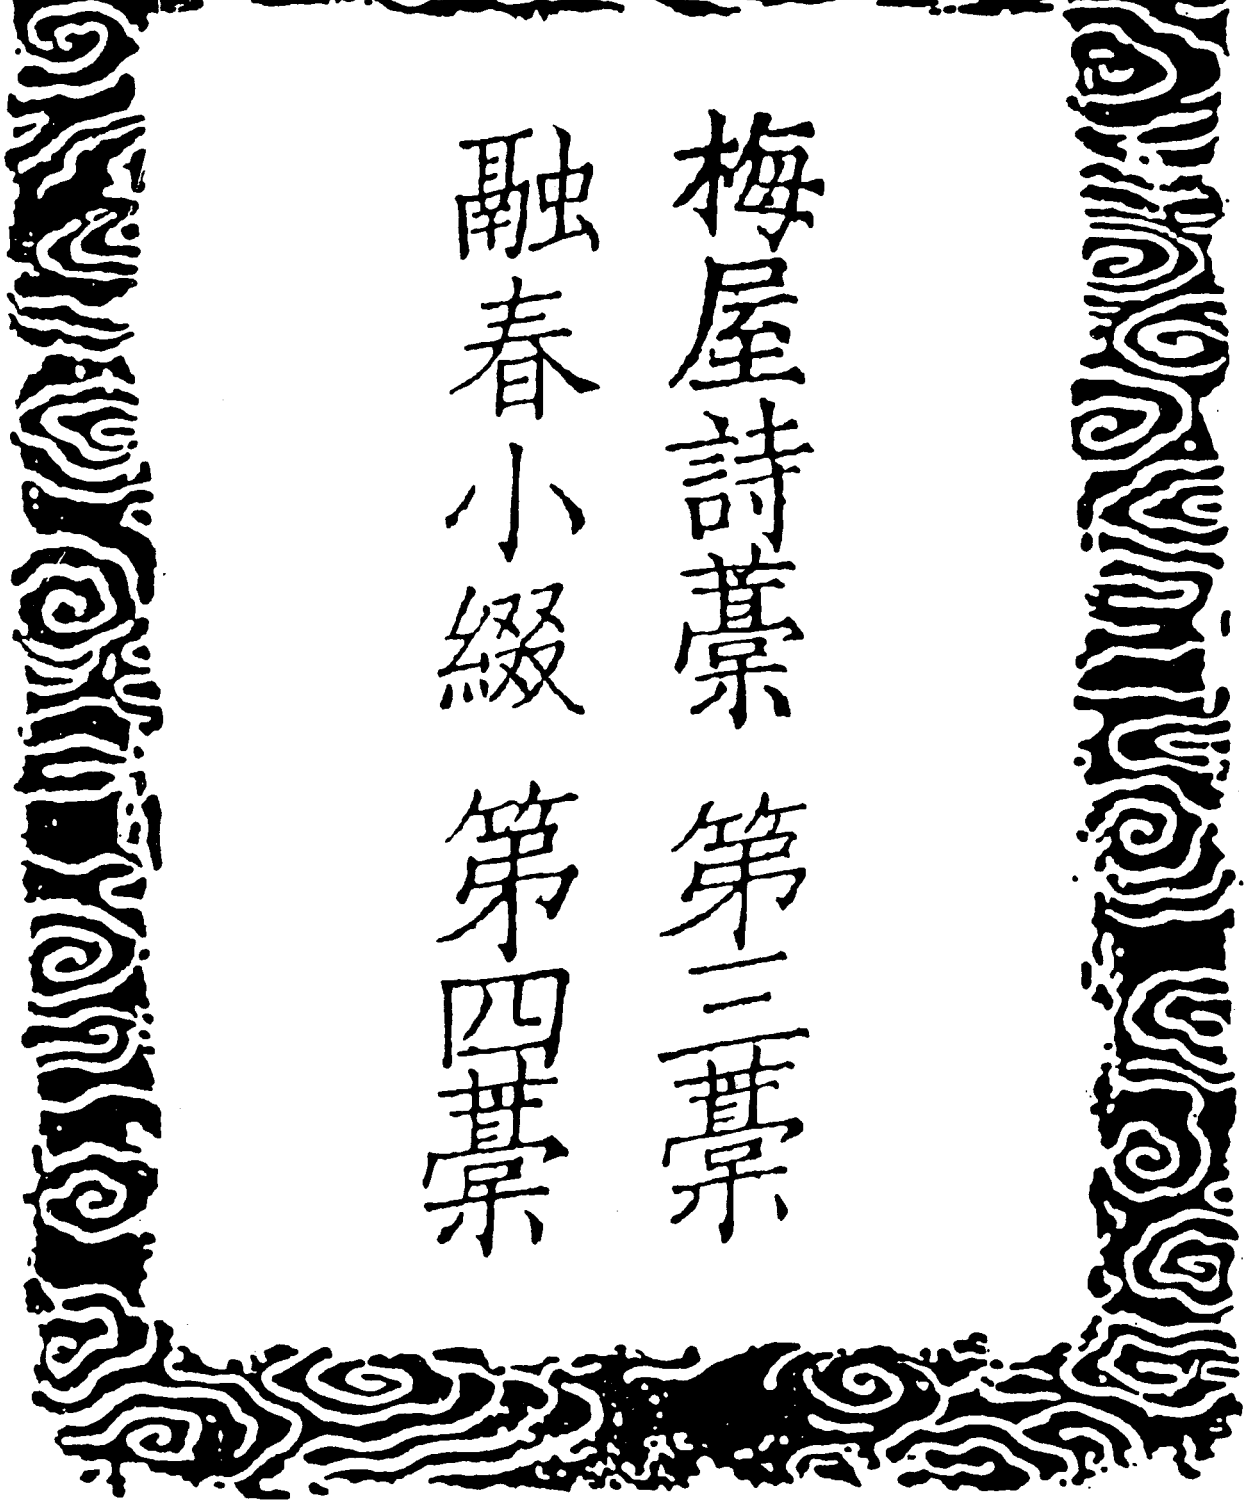 梅屋詩藁 第三藁
融春小綴 第四藁